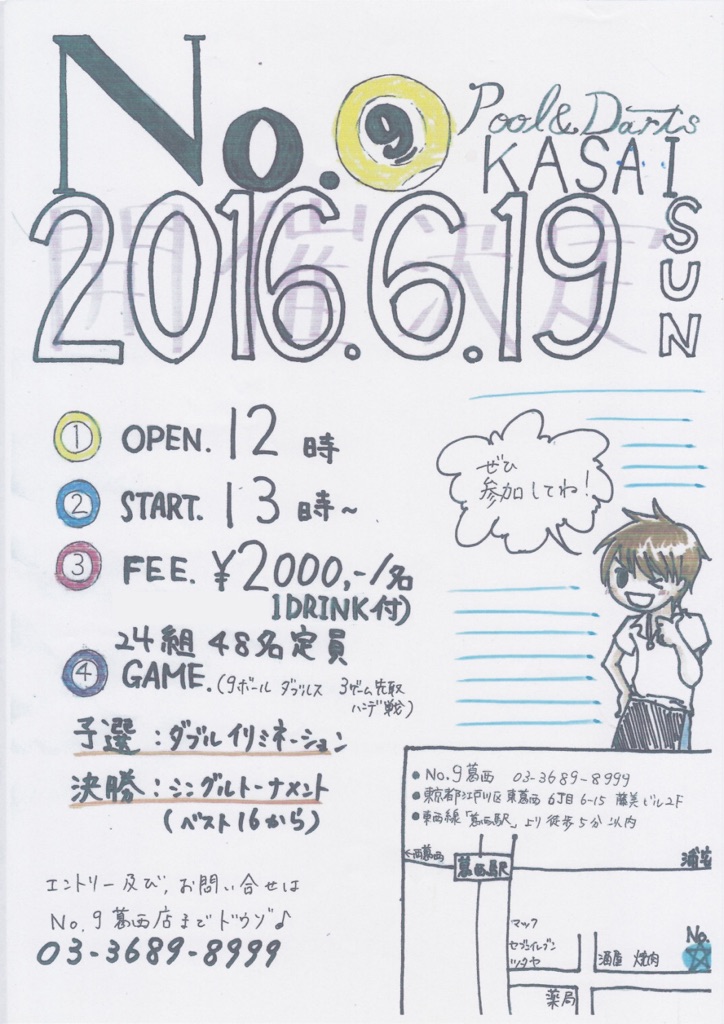 No.9 Pool & Darts
KASAI
2016.6.19 SUN
開催決定
① OPEN. 12時
② START. 13時~
③ FEE. ¥2000,-/名
1DRINK付)
24組 48名定員
④ GAME. (9ボール ダブルス 3ゲーム先取
ハンデ戦)
予選:ダブルイリミネーション
決勝:シングルトーナメント
(ベスト16から)
ぜひ
参加してね!
エントリー及び、お問い合せは
No.9葛西店までドウゾ♪
03-3689-8999
●No.9葛西 03-3689-8999
●東京都江戸川区東葛西6丁目6-15 藤美ビル2F
●東西線「葛西駅」より徒歩5分以内
←西葛西
葛西駅
浦安
マック
セブンイレブン
ツタヤ
酒屋 焼肉
No.
薬局